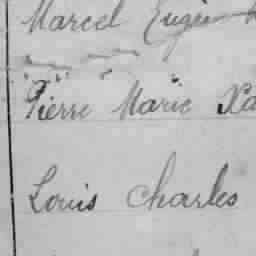 Marcel Eugène
Pierre Marie Xa
Louis Charles